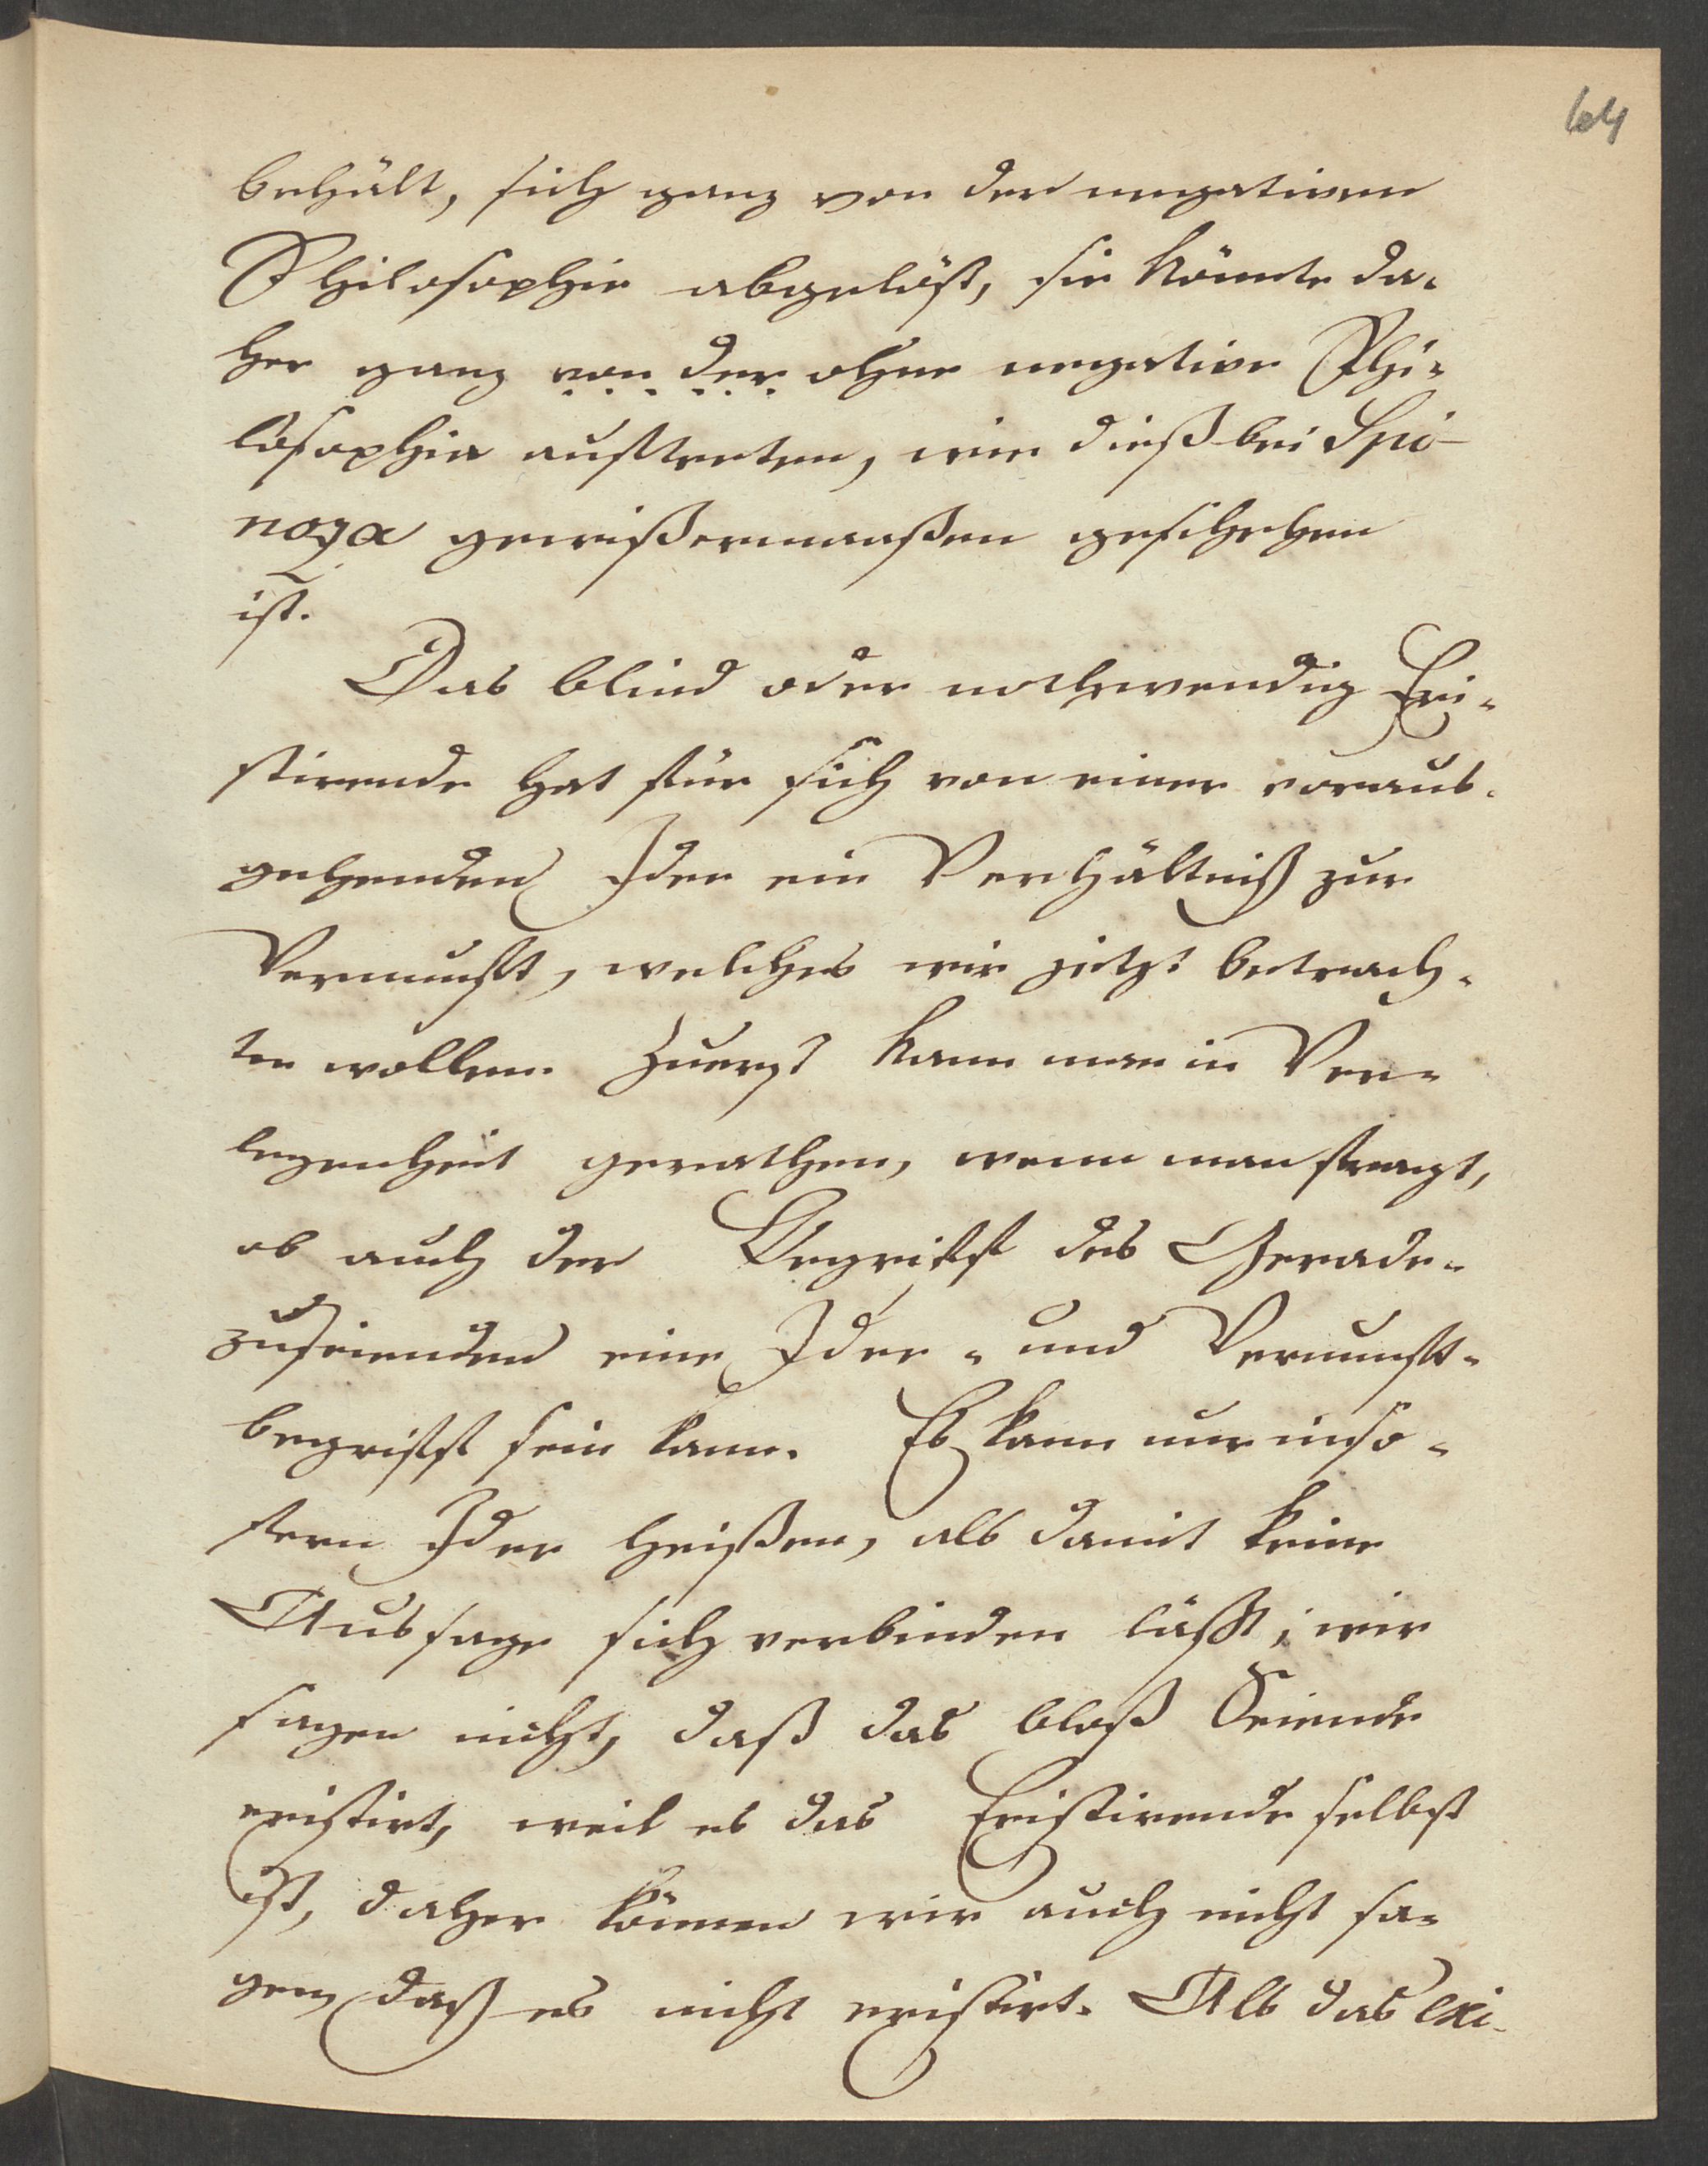 64
behält, sich ganz von der negativen
Philosophie abgelöst, sie könnte da-
her ganz von der ohne negative Phi-
losophie auftreten, wie dieß bei Spi-
noza gewißermaaßen geschehen
ist.
Das blind oder nothwendig Exi-
stirende hat für sich von einer voraus-
gehenden Idee ein Verhältniß zur
Vernunft, welches wir jetzt betrach-
ten wollen. Zuerst kann man in Ver-
legenheit gerathen, wenn man fragt,
ob auch der Begriff des Gerade-
zuseienden eine Idee- und Vernunft-
begriff sein kann. Es kann nur inso-
fern Idee heißen, als damit keine
Aussage sich verbinden läßt; wir
sagen nicht, daß das bloß Seiende
existirt, weil es das Existirende selbst
ist, daher können wir auch nicht sa-
gen, daß es nicht existirt. Als das exi-